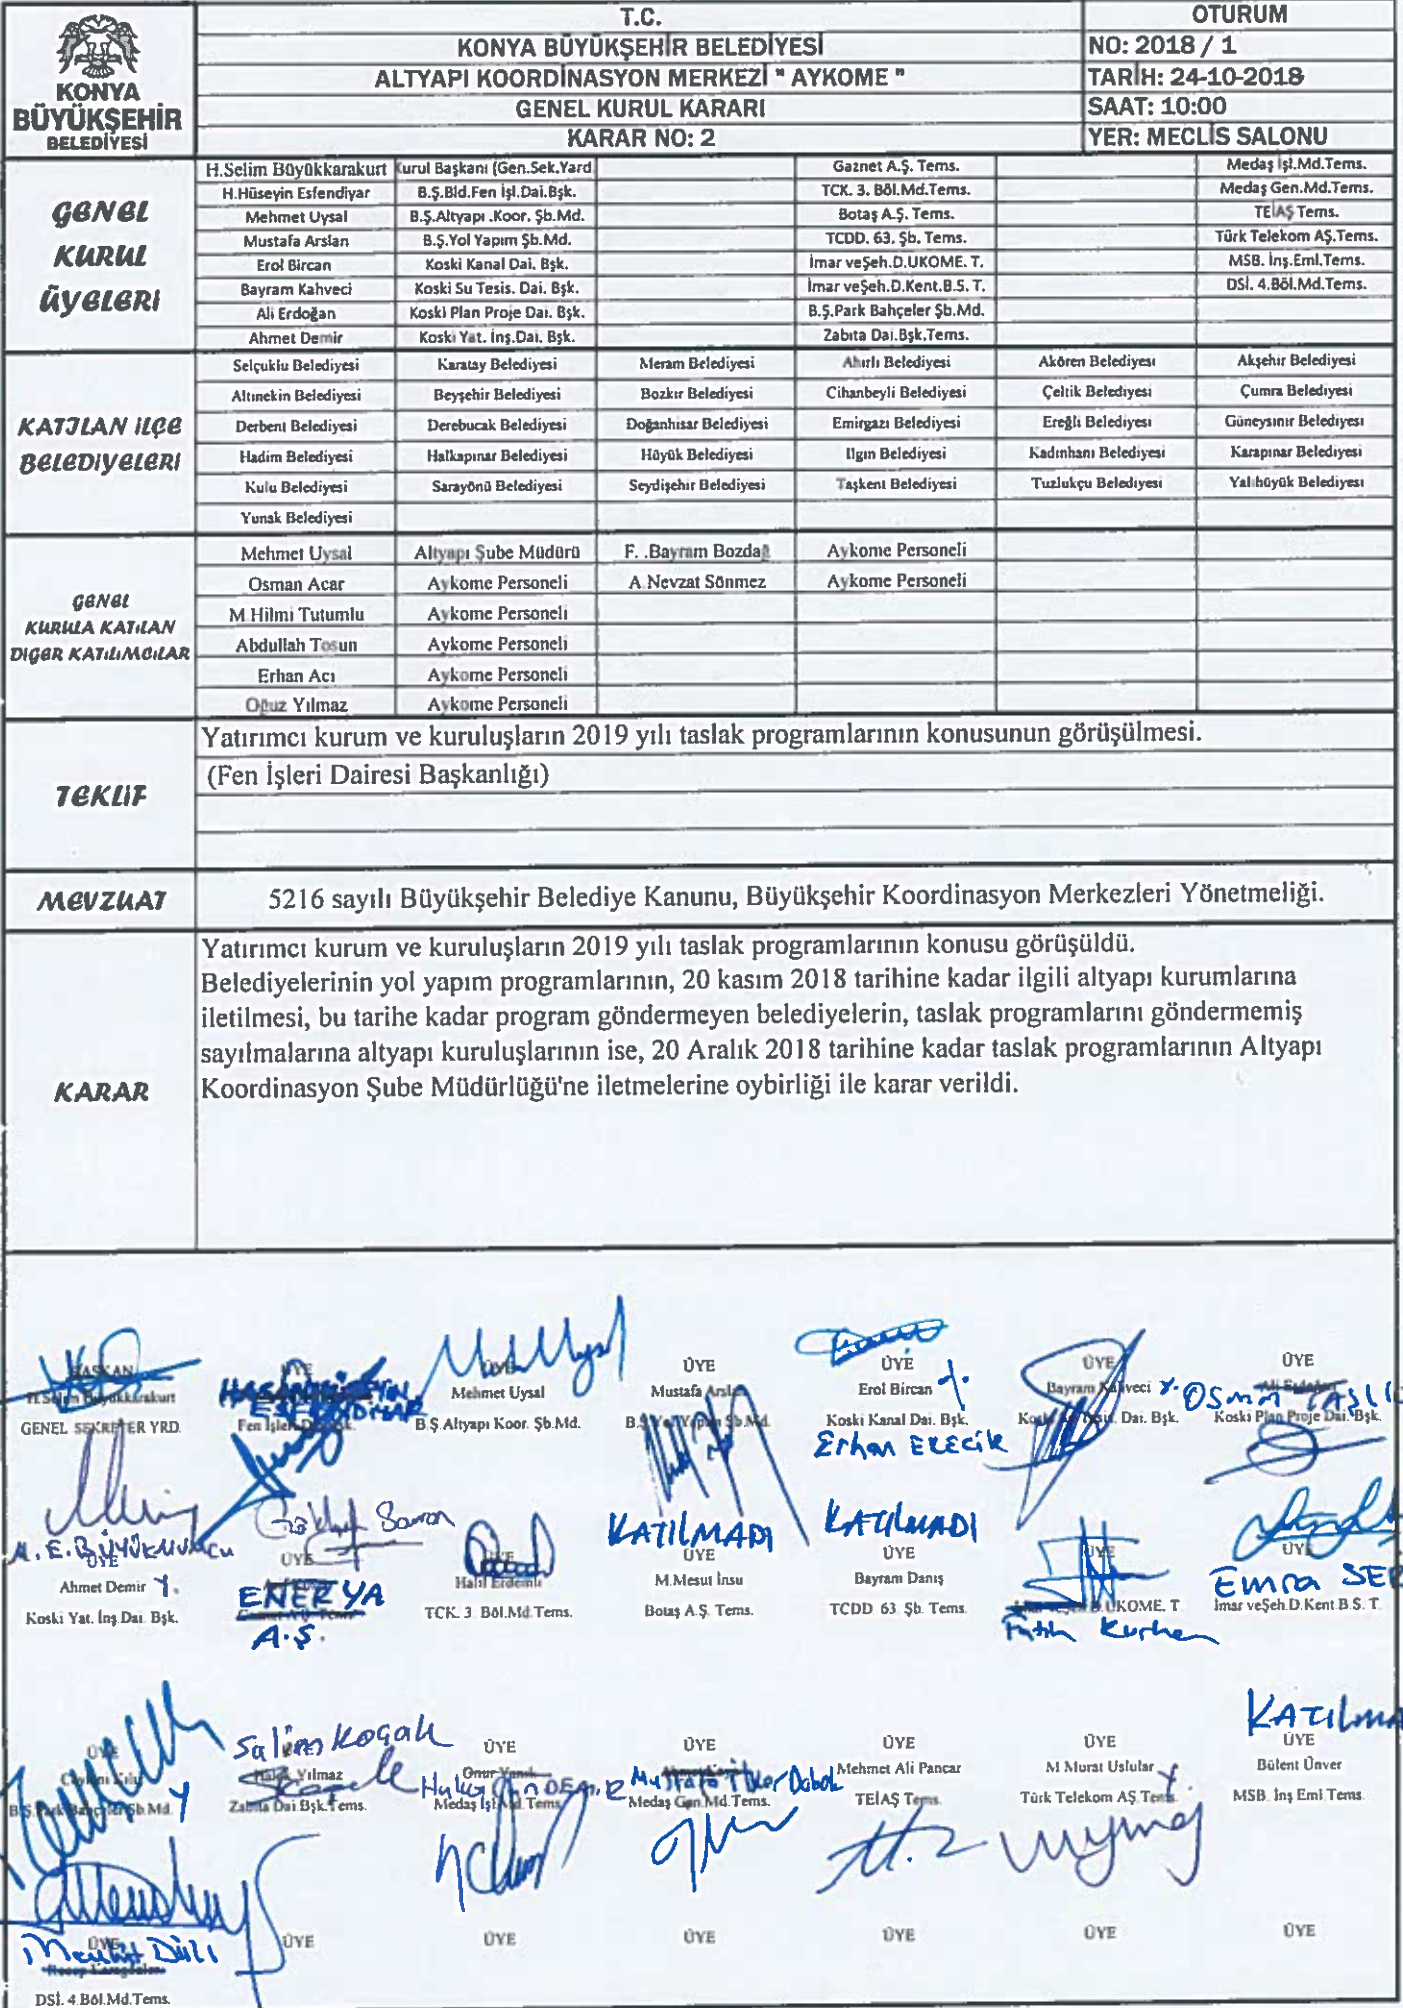 KONYA
BÜYÜKŞEHİR
BELEDİYESİ
T.C.
KONYA BÜYÜKŞEHİR BELEDİYESİ
ALTYAPI KOORDİNASYON MERKEZİ " AYKOME "
GENEL KURUL KARARI
KARAR NO: 2
OTURUM
NO: 2018 / 1
TARİH: 24-10-2018
SAAT: 10:00
YER: MECLİS SALONU
GENEL
KURUL
ÜYELERİ
H.Selim Büyükkarakurt Kurul Başkanı (Gen.Sek.Yard Gaznet A.Ş. Tems. Medaş İşl.Md.Tems.
H.Hüseyin Esfendiyar B.Ş.Bld.Fen İşl.Dai.Bşk. TCK. 3. Böl.Md.Tems. Medaş Gen.Md.Tems.
Mehmet Uysal B.Ş.Altyapı .Koor. Şb.Md. Botaş A.Ş. Tems. TEİAŞ Tems.
Mustafa Arslan B.Ş.Yol Yapım Şb.Md. TCDD. 63. Şb. Tems. Türk Telekom AŞ.Tems.
Erol Bircan Koski Kanal Dai. Bşk. İmar veŞeh.D.UKOME. T. MSB. İnş.Eml.Tems.
Bayram Kahveci Koski Su Tesis. Dai. Bşk. İmar veŞeh.D.Kent.B.S. T. DSİ. 4.Böl.Md.Tems.
Ali Erdoğan Koski Plan Proje Dai. Bşk. B.Ş.Park Bahçeler Şb.Md.
Ahmet Demir Koski Yat. İnş.Dai. Bşk. Zabıta Dai.Bşk.Tems.
KATILAN İLÇE
BELEDİYELERİ
Selçuklu Belediyesi Karatay Belediyesi Meram Belediyesi Ahırlı Belediyesi Akören Belediyesi Akşehir Belediyesi
Altınekin Belediyesi Beyşehir Belediyesi Bozkır Belediyesi Cihanbeyli Belediyesi Çeltik Belediyesi Çumra Belediyesi
Derbent Belediyesi Derebucak Belediyesi Doğanhisar Belediyesi Emirgazi Belediyesi Ereğli Belediyesi Güneysınır Belediyesi
Hadim Belediyesi Halkapınar Belediyesi Hüyük Belediyesi Ilgın Belediyesi Kadınhanı Belediyesi Karapınar Belediyesi
Kulu Belediyesi Sarayönü Belediyesi Seydişehir Belediyesi Taşkent Belediyesi Tuzlukçu Belediyesi Yalıhüyük Belediyesi
Yunak Belediyesi
GENEL
KURULA KATILAN
DİĞER KATILIMCILAR
Mehmet Uysal Altyapı Şube Müdürü F. .Bayram Bozdağ Aykome Personeli
Osman Acar Aykome Personeli A Nevzat Sönmez Aykome Personeli
M Hilmi Tutumlu Aykome Personeli
Abdullah Tosun Aykome Personeli
Erhan Acı Aykome Personeli
Oğuz Yılmaz Aykome Personeli
TEKLİF
Yatırımcı kurum ve kuruluşların 2019 yılı taslak programlarının konusunun görüşülmesi.
(Fen İşleri Dairesi Başkanlığı)
MEVZUAT
5216 sayılı Büyükşehir Belediye Kanunu, Büyükşehir Koordinasyon Merkezleri Yönetmeliği.
KARAR
Yatırımcı kurum ve kuruluşların 2019 yılı taslak programlarının konusu görüşüldü.
Belediyelerinin yol yapım programlarının, 20 kasım 2018 tarihine kadar ilgili altyapı kurumlarına
iletilmesi, bu tarihe kadar program göndermeyen belediyelerin, taslak programlarını göndermemiş
sayılmalarına altyapı kuruluşlarının ise, 20 Aralık 2018 tarihine kadar taslak programlarının Altyapı
Koordinasyon Şube Müdürlüğü'ne iletmelerine oybirliği ile karar verildi.
BAŞKAN ÜYE ÜYE ÜYE ÜYE ÜYE ÜYE
H.Selim Büyükkarakurt Mehmet Uysal Mustafa Arslan Erol Bircan Bayram Kahveci Ali Erdoğan
GENEL SEKRETER YRD. Fen İşleri B.Ş.Altyapı Koor. Şb.Md. B.Ş.Yol Yapım Şb.Md. Koski Kanal Dai. Bşk. Dai. Bşk. Koski Plan Proje Dai. Bşk.
Erhan
KATILMADI KATILMADI
ÜYE ÜYE ÜYE ÜYE ÜYE ÜYE
Ahmet Demir Y. ENERYA Halil Erdemli M.Mesut İnsu Bayram Danış
Koski Yat. İnş Dai. Bşk. A.Ş. TCK. 3. Böl.Md.Tems. Botaş A.Ş. Tems. TCDD 63 Şb. Tems. UKOME. T İmar veŞeh.D.Kent B.S. T.
Fatih
Salim Koçak
ÜYE ÜYE ÜYE ÜYE ÜYE ÜYE
Yılmaz Mustafa Mehmet Ali Pancar M Murat Uslular Bülent Ünver
B.Ş.Park Şb.Md. Zabıta Dai.Bşk.Tems. Medaş İşl.Md.Tems. Medaş Gen.Md.Tems. TEİAŞ Tems. Türk Telekom AŞ.Tems. MSB. İnş Eml Tems.
ÜYE ÜYE ÜYE ÜYE ÜYE ÜYE ÜYE
DSİ. 4.Böl.Md.Tems.